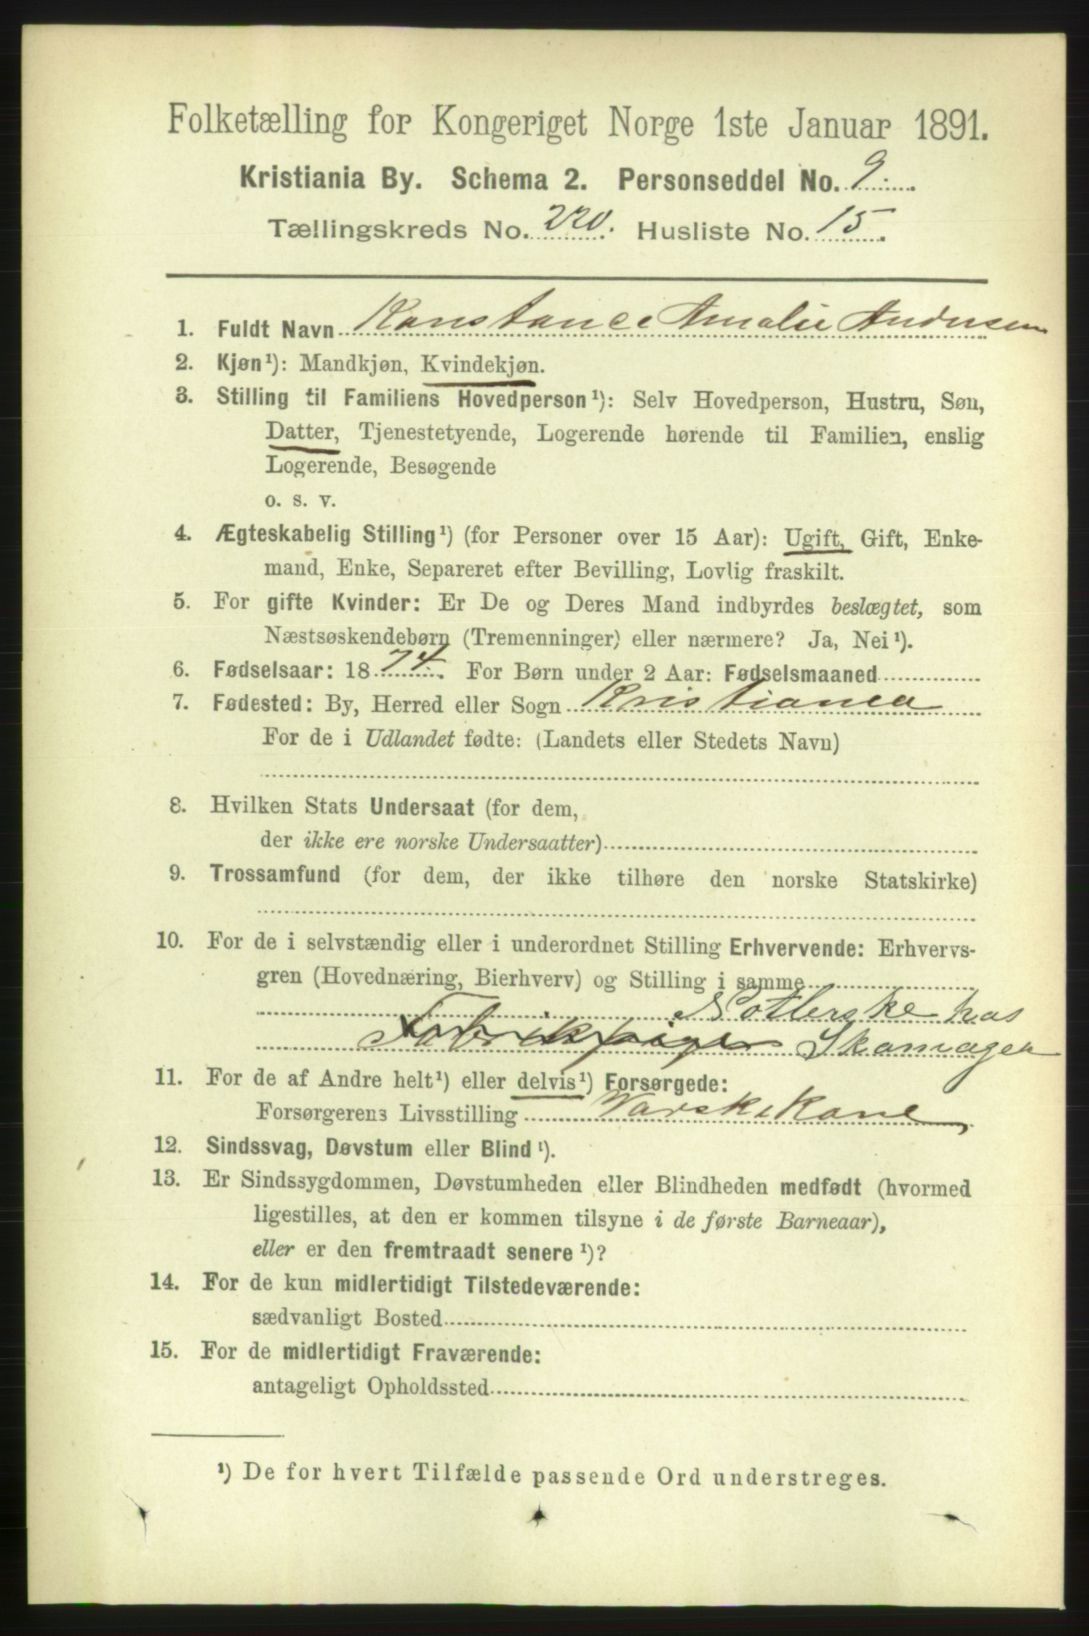 Folketælling for Kongeriget Norge 1ste Januar 1891.
Kristiania By. Schema 2. Personseddel No. 9
Tællingskreds No. 220. Husliste No. 15
1. Fuldt Navn Konstance Amalie Andersen
2. Kjøn¹): Mandkjøn, Kvindekjøn.
3. Stilling til Familiens Hovedperson¹): Selv Hovedperson, Hustru, Søn,
Datter, Tjenestetyende, Logerende hørende til Familien, enslig
Logerende, Besøgende
o. s. v.
4. Ægteskabelig Stilling¹) (for Personer over 15 Aar): Ugift, Gift, Enke-
mand, Enke, Separeret efter Bevilling, Lovlig fraskilt.
5. For gifte Kvinder: Er De og Deres Mand indbyrdes beslægtet, som
Næstsøskendebørn (Tremenninger) eller nærmere? Ja, Nei¹).
6. Fødselsaar: 1874. For Børn under 2 Aar: Fødselsmaaned
7. Fødested: By, Herred eller Sogn Kristiania
For de i Udlandet fødte: (Landets eller Stedets Navn)
8. Hvilken Stats Undersaat (for dem,
der ikke ere norske Undersaatter)
9. Trossamfund (for dem, der ikke tilhøre den norske Statskirke)
10. For de i selvstændig eller i underordnet Stilling Erhvervende: Erhvervs-
gren (Hovednæring, Bierhverv) og Stilling i samme
Notlerske hos
Fabrikpige Skomager
11. For de af Andre helt¹) eller delvis¹) Forsørgede:
Forsørgerens Livsstilling Vaskekone
12. Sindssvag, Døvstum eller Blind¹).
13. Er Sindssygdommen, Døvstumheden eller Blindheden medfødt (hvormed
ligestilles, at den er kommen tilsyne i de første Barneaar),
eller er den fremtraadt senere¹)?
14. For de kun midlertidigt Tilstedeværende:
sædvanligt Bosted
15. For de midlertidigt Fraværende:
antageligt Opholdssted
¹) De for hvert Tilfælde passende Ord understreges.